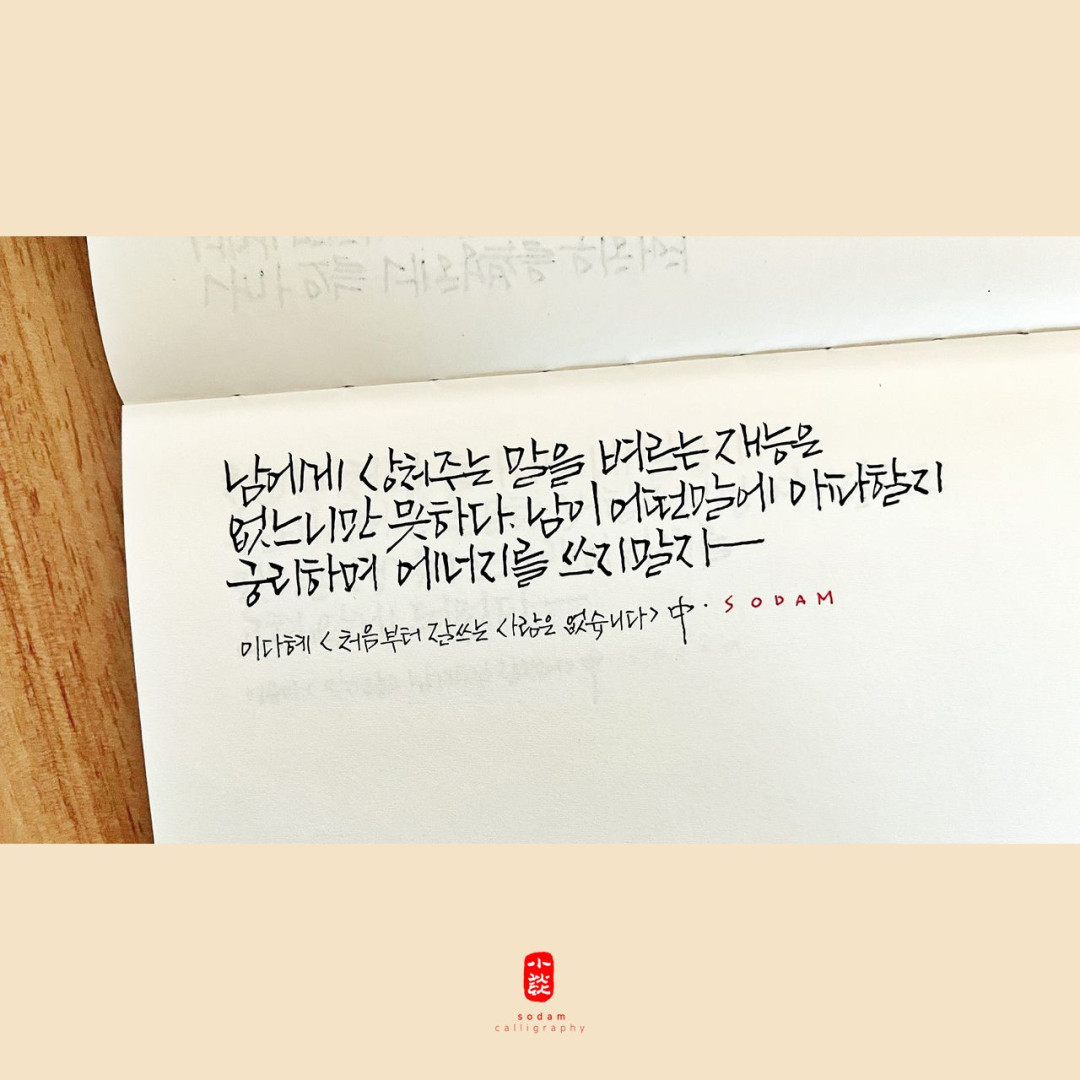 남에게 상처주는 말을 벼르는 재능은
없느니만 못하다. 남이 어떤말에 아파할지
궁리하며 에너지를 쓰지말자—
이다혜 <처음부터 잘쓰는 사람은 없습니다> 中. SODAM
小談
sodam
calligraphy